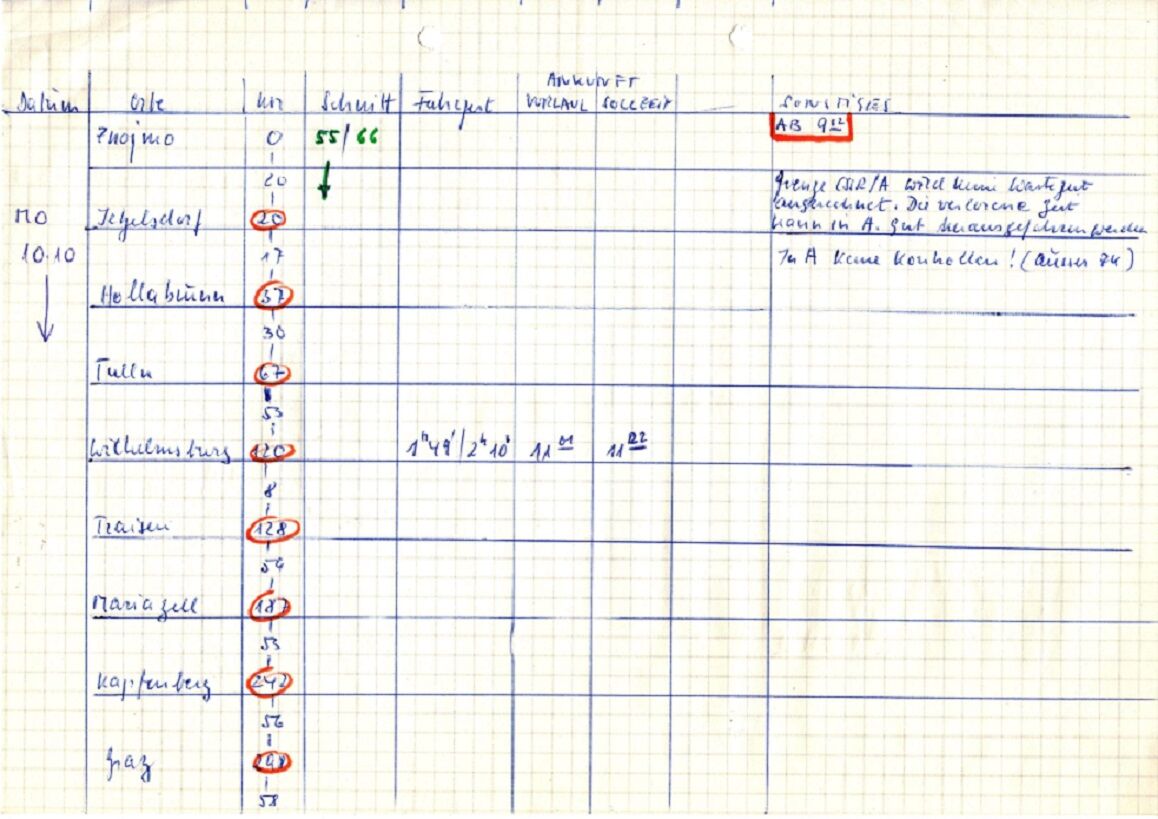 ANKUNFT
Datum Orte km Schnitt Fahrzeit VORLAUF SOLLZEIT SONSTIGES
Znojmo 0 55/66 AB 9 12
20
Grenze ČSR/A wird keine Wartezeit
MO Jetzelsdorf 20 eingerechnet. Die verlorene Zeit
kann in A. gut herausgefahren werden
10.10 17 In A keine Kontrollen! (ausser ZK)
Hollabrunn 37
30
Tulln 67
53
Wilhelmsburg 120 1h 49'/2h 10' 11 01 11 22
8
Traisen 128
59
Mariazell 187
55
Kapfenberg 242
56
Graz 298
58